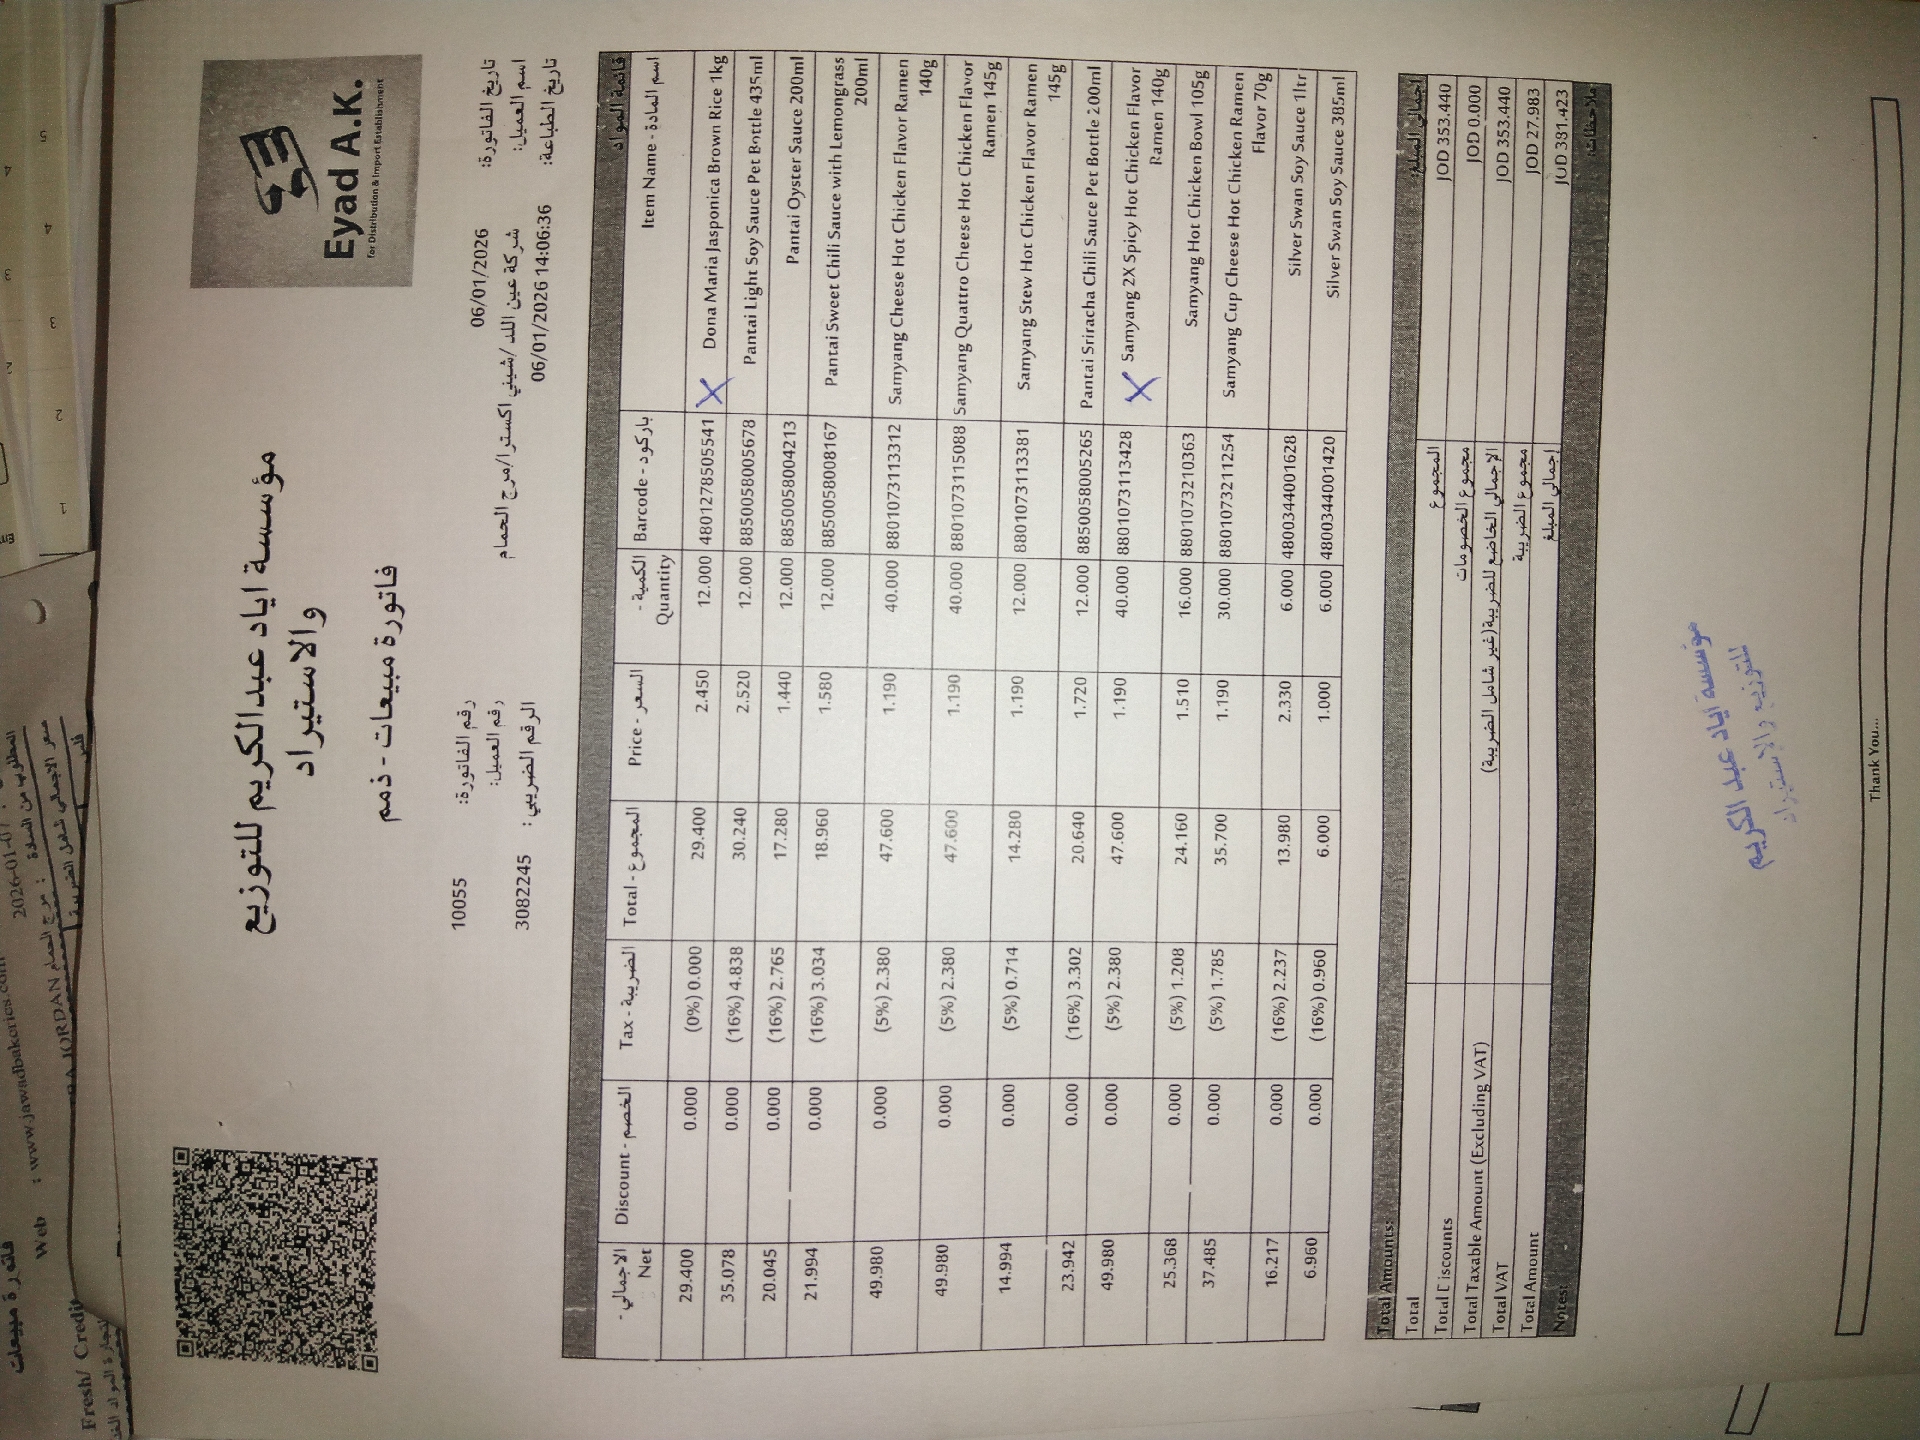 Eyad A.K.
for Distribution & Import Establishment
مؤسسة اياد عبدالكريم للتوزيع
والاستيراد
فاتورة مبيعات - ذمم
تاريخ الفاتورة: 06/01/2026
رقم الفاتورة: 10055
اسم العميل: شركة عين اللد /شيني اكسترا/مرج الحمام
رقم العميل:
تاريخ الطباعة: 06/01/2026 14:06:36
الرقم الضريبي : 3082245
قائمة المواد
اسم المادة - Item Name | باركود - Barcode | الكمية - Quantity | السعر - Price | المجموع - Total | الضريبة - Tax | الخصم - Discount | الاجمالي - Net
X Dona Maria Jasponica Brown Rice 1kg | 4801278505541 | 12.000 | 2.450 | 29.400 | (0%) 0.000 | 0.000 | 29.400
Pantai Light Soy Sauce Pet Bottle 435ml | 8850058005678 | 12.000 | 2.520 | 30.240 | (16%) 4.838 | 0.000 | 35.078
Pantai Oyster Sauce 200ml | 8850058004213 | 12.000 | 1.440 | 17.280 | (16%) 2.765 | 0.000 | 20.045
Pantai Sweet Chili Sauce with Lemongrass 200ml | 8850058008167 | 12.000 | 1.580 | 18.960 | (16%) 3.034 | 0.000 | 21.994
Samyang Cheese Hot Chicken Flavor Ramen 140g | 8801073113312 | 40.000 | 1.190 | 47.600 | (5%) 2.380 | 0.000 | 49.980
Samyang Quattro Cheese Hot Chicken Flavor Ramen 145g | 8801073115088 | 40.000 | 1.190 | 47.600 | (5%) 2.380 | 0.000 | 49.980
Samyang Stew Hot Chicken Flavor Ramen 145g | 8801073113381 | 12.000 | 1.190 | 14.280 | (5%) 0.714 | 0.000 | 14.994
Pantai Sriracha Chili Sauce Pet Bottle 200ml | 8850058005265 | 12.000 | 1.720 | 20.640 | (16%) 3.302 | 0.000 | 23.942
X Samyang 2X Spicy Hot Chicken Flavor Ramen 140g | 8801073113428 | 40.000 | 1.190 | 47.600 | (5%) 2.380 | 0.000 | 49.980
Samyang Hot Chicken Bowl 105g | 8801073210363 | 16.000 | 1.510 | 24.160 | (5%) 1.208 | 0.000 | 25.368
Samyang Cup Cheese Hot Chicken Ramen Flavor 70g | 8801073211254 | 30.000 | 1.190 | 35.700 | (5%) 1.785 | 0.000 | 37.485
Silver Swan Soy Sauce 1ltr | 4800344001628 | 6.000 | 2.330 | 13.980 | (16%) 2.237 | 0.000 | 16.217
Silver Swan Soy Sauce 385ml | 4800344001420 | 6.000 | 1.000 | 6.000 | (16%) 0.960 | 0.000 | 6.960
Total Amounts: اجمالي المبلغ:
Total | المجموع | JOD 353.440
Total Discounts | مجموع الخصومات | JOD 0.000
Total Taxable Amount (Excluding VAT) | الإجمالي الخاضع للضريبة(غير شامل الضريبة) | JOD 353.440
Total VAT | مجموع الضريبة | JOD 27.983
Total Amount | إجمالي المبلغ | JOD 381.423
Notes: ملاحظات:
مؤسسة اياد عبد الكريم
للتوزيع والاستيراد
Thank You...
فاتورة مبيعات
Web : www.jawadbakeries.com
Fresh/ Credit
JORDAN